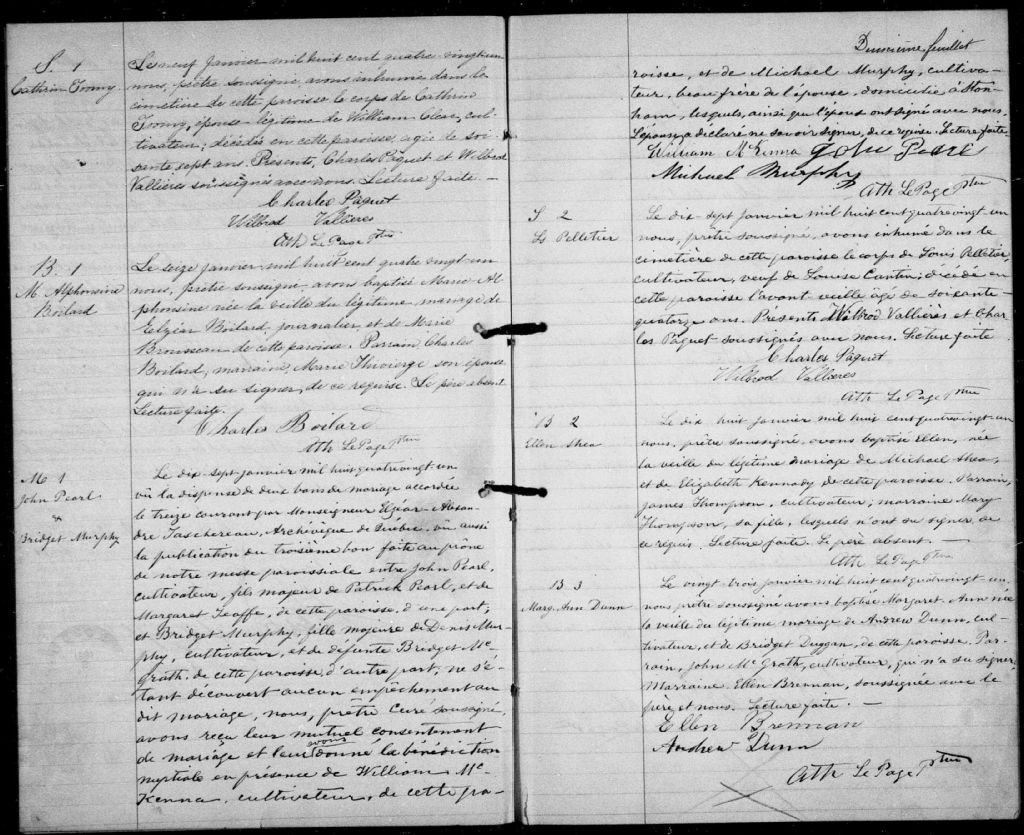 S. 1
Cathrin Toomy
Le neuf janvier mil huit cent quatre vingt un
nous, prêtre soussigné, avons inhumé dans le
cimetière de cette paroisse le corps de Cathrin
Toomy, épouse légitime de William Clear, cul-
tivateur; décédée en cette paroisse agée de soi-
xante sept ans. Presents, Charles Paquet et Wilbrod
Vallières soussignés avec nous. Lecture faite. —
Charles Paquet
Wilbrod Vallieres
Ath LePage Ptre
B. 1
M. Alphonsine
Boilard
Le seize janvier mil huit cent quatre vingt un
nous, prêtre soussigné, avons baptisé Marie Al-
phonsine née la veille du légitime mariage de
Elzéar Boilard, journalier, et de Marie
Brousseau de cette paroisse. Parrain, Charles
Boilard; marraine, Marie Thivierge son épouse
qui n'a su signer, de ce requise. Le père absent.
Lecture faite.
Charles Boilard
Ath LePage Ptre
M 1
John Pearl
&
Bridget Murphy
Le dix-sept janvier mil huit quatrevingt un
vû la dispense de deux bans de mariage accordée
le treize courant par Monseigneur Elzéar-Alexan-
dre Taschereau, Archévêque de Québec, vu aussi
la publication du troisième ban faite au prône
de notre messe paroissiale entre John Pearl,
cultivateur, fils majeur de Patrick Pearl, et de
Margaret, de cette paroisse, d'une part;
et Bridget Murphy, fille majeure de Denis Mur-
phy, cultivateur, et de defunte Bridget Mc
Grath, de cette paroisse, d'autre part, ne s'é-
tant découvert aucun empêchement au
dit mariage, nous, prêtre Curé soussigné,
avons reçu leur mutuel consentement
de mariage et leur avons donné la bénédiction
nuptiale en présence de William Mc
Kenna, cultivateur, de cette pa-
Deuxième feuillet
roisse, et de Michael Murphy, cultiva-
teur, beau frère de l'épouse, domicilié à Ston-
ham, lesquels, ainsi que l'époux ont signé avec nous.
L'épouse a déclaré ne savoir signer, de ce requise. Lecture faite.
William McKinna John Perl
Michael Murphy
Ath LePage Ptre
S 2
Ls Pelletier
Le dix-sept janvier mil huit cent quatrevingt un
nous, prêtre soussigné, avons inhumé dans le
cimetière de cette paroisse le corps de Louis Pelletier,
cultivateur, veuf de Louise Cantin; décédé en
cette paroisse l'avant-veille âgé de soixante
quatorze ans. Presents Wilbrod Vallières et Char-
les Paquet soussignés avec nous. Lecture faite
Charles Paquet
Wilbrod Vallieres
Ath LePage Ptre
B 2
Ellen Shea
Le dix huit janvier mil huit cent quatrevingt-un
nous, prêtre soussigné, avons baptisé Ellen, née
la veille du légitime mariage de Michael Shea,
et de Elizabeth Kennedy de cette paroisse. Parrain,
James Thompson, cultivateur, marraine Mary
Thompson, sa fille, lesquels n'ont su signer, de
ce réquis. Lecture faite. Le père absent. —
Ath LePage Ptre
B 3
Marg. Ann Dunn
Le vingt-trois janvier mil huit cent quatrevingt-un,
nous prêtre soussigné avons baptisé Margaret Ann née
la veille du légitime mariage de Andrew Dunn, cul-
tivateur, et de Bridget Duggan, de cette paroisse. Par-
rain, John McGrath, cultivateur, qui n'a su signer,
Marraine Ellen Brennan, soussignée avec le
père et nous. Lecture faite. —
Ellen Brennan
Andrew Dunn
Ath LePage Ptre